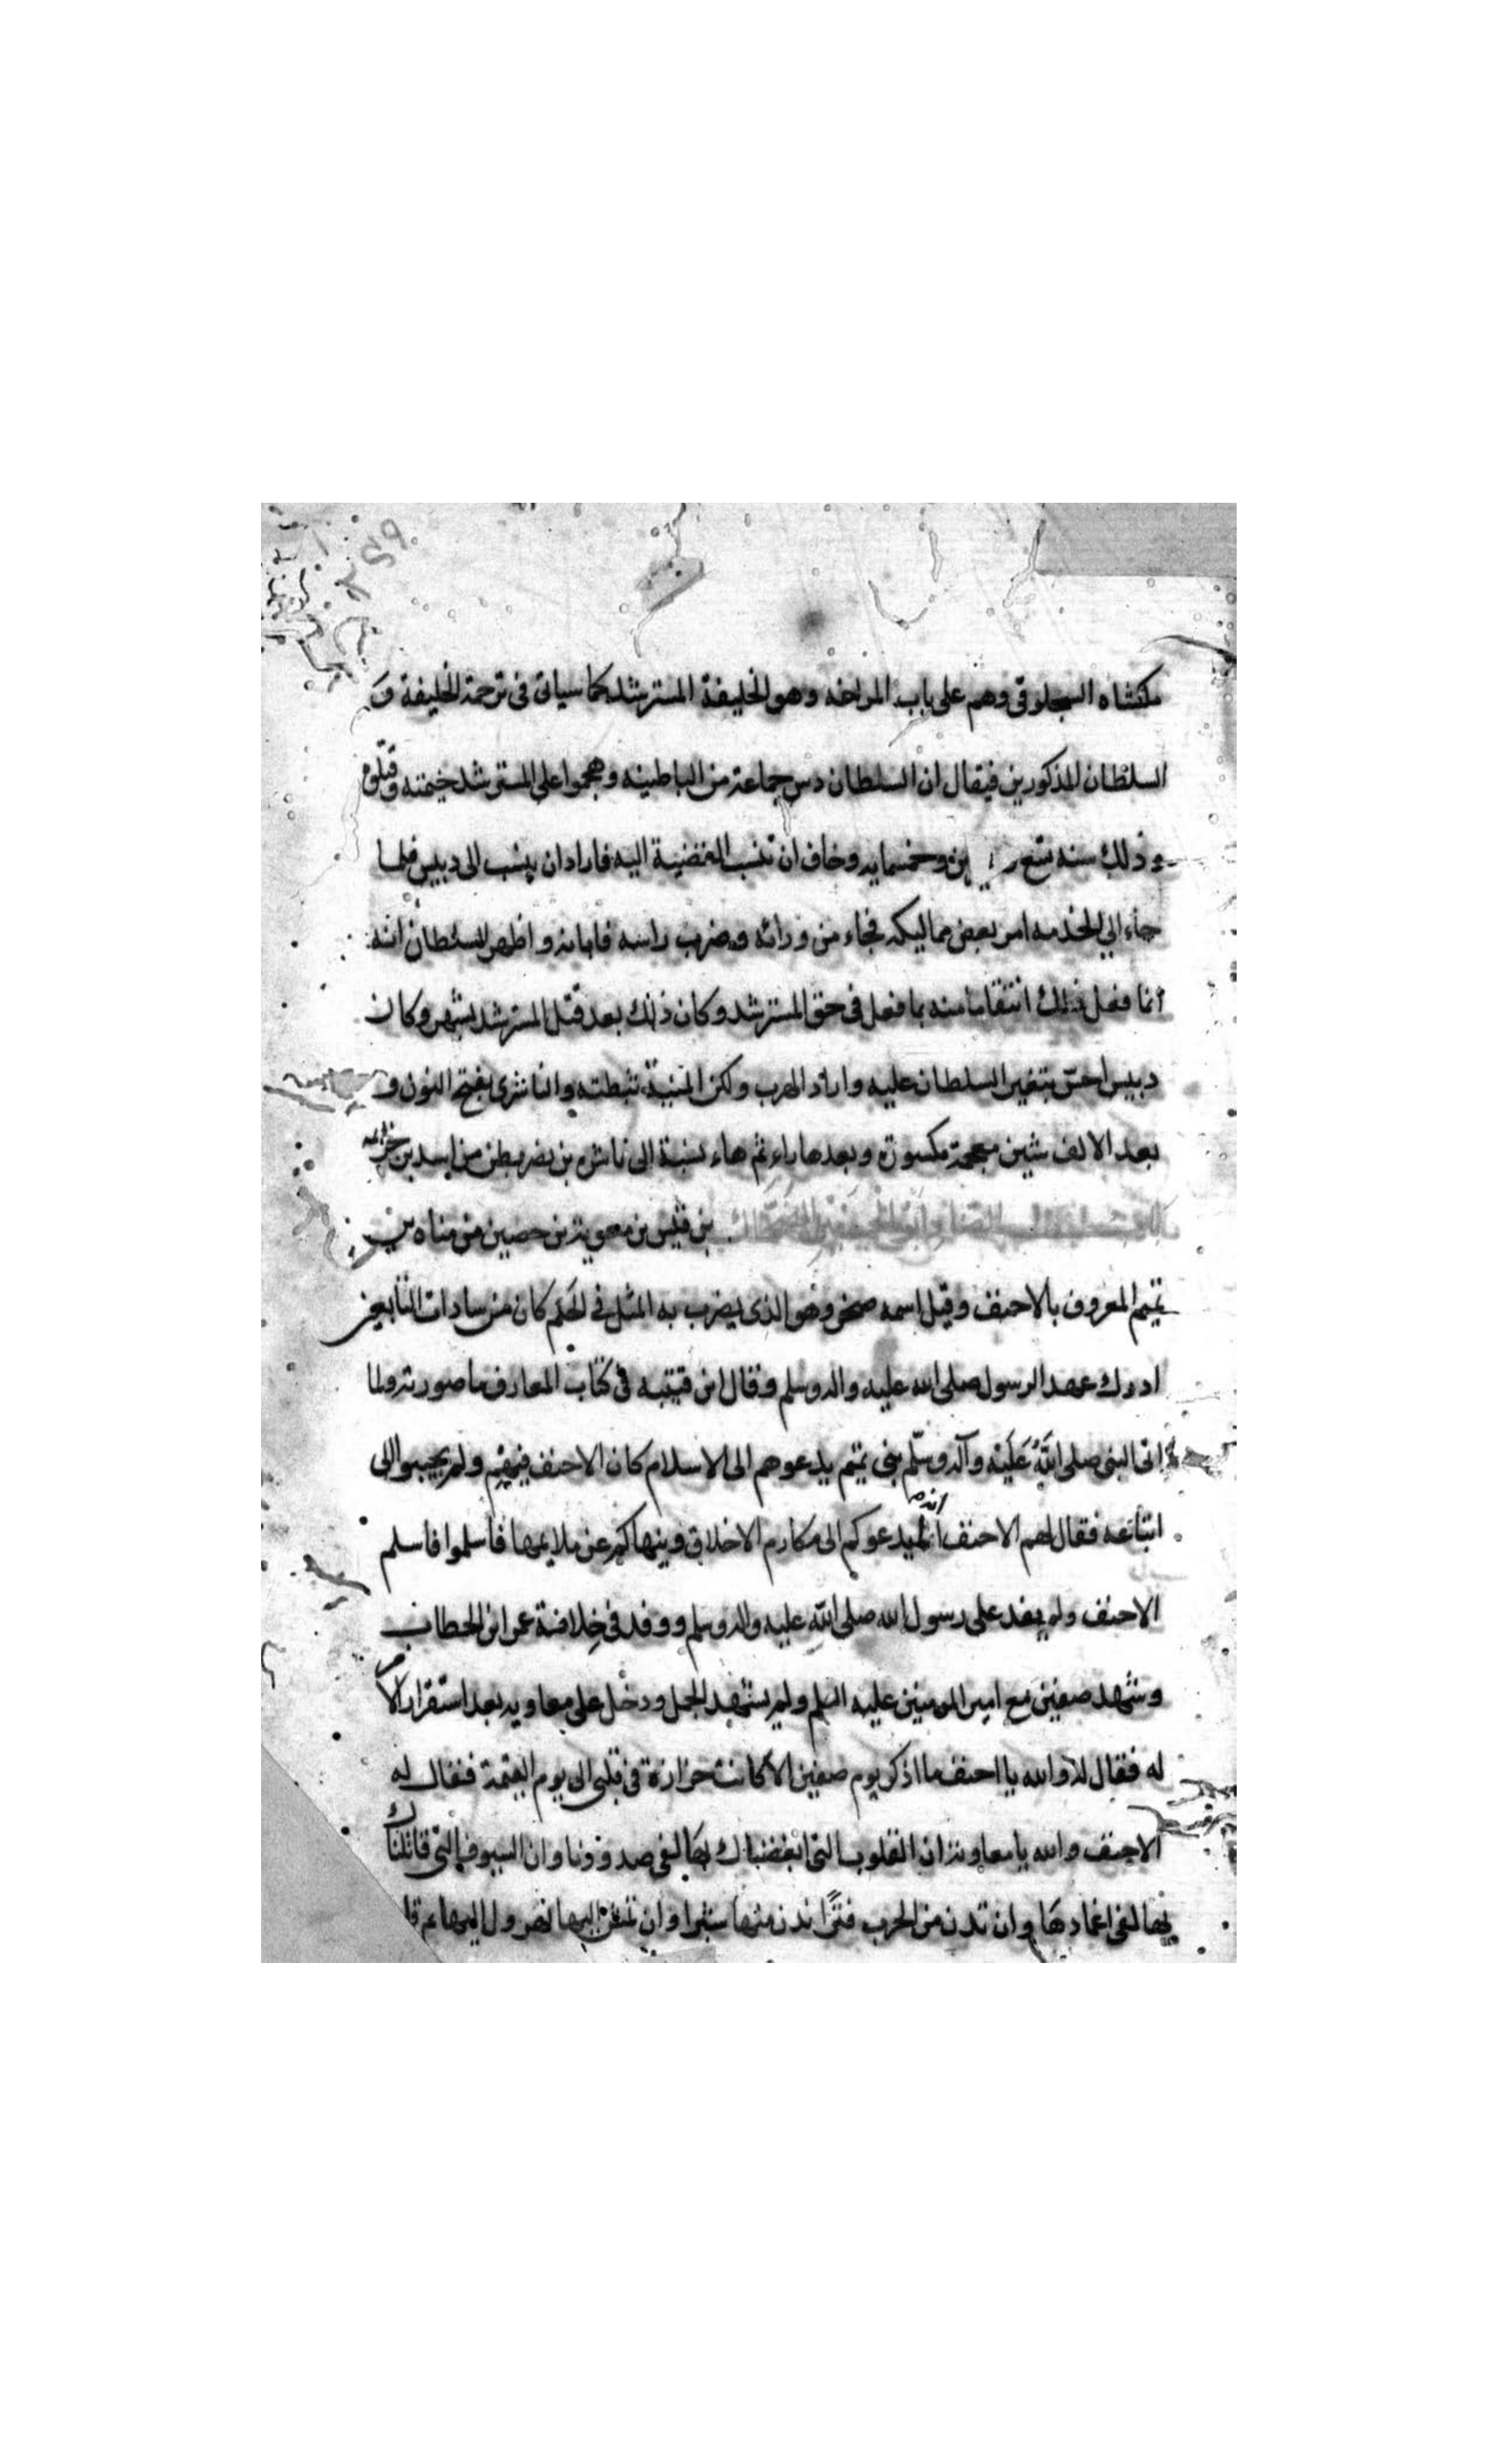 ملكشاه السجلوقى وهم على باب المراغه وهو الخليفة المسترشد كما سياتى فى ترجمة الخليفة و
السلطان المذكورين فيقال ان السلطان دس جماعة من الباطينه وهجموا على المسترشد خيمته وقتلوه
وذلك سنه تسع وخمسمايه وخاف ان تنسب القضية اليه فاراد ان ينسب الى دبيس فلما
جاء الى الخدمه امر بعض مماليكه فجاء من ورائه وضرب راسه فابانه و اظهر للسلطان انه
انما فعل ذلك انتقاما منه بما فعل فى حق المسترشد وكان ذلك بعد قتل المسترشد بشهر وكان
دبيس احس بتغير السلطان عليه واراد الهرب ولكن المنية ثبطته والناشرى بفتح النون و
بعد الالف شين معجمة مكسوره وبعدها راء ثم هاء نسبة الى ناشره بن نضر بطن من اسد بن خزيمه
الضحاك بن قيس بن معوية بن حصين من مناه بن
تميم المعروف بالاحنف وقيل اسمه صخر وهو الذى يضرب به المثل فى الحلم كان من سادات التابعين
ادرك عهد الرسول صلى الله عليه واله وسلم وقال ابن قتيبه فى كتاب المعارف ما صورته ولما
اتى النبى صلى الله عليه وآله وسلم بنى تميم يدعوهم الى الاسلام كان الاحنف فيهم ولم يجيبوا الى
اتباعه فقال لهم الاحنف انه ليدعوكم الى مكارم الاخلاق وينهاكم عن ملايمها فاسلموا فاسلم
الاحنف ولم يفد على رسول الله صلى الله عليه واله وسلم ووفد فى خلافة عمر ابن الخطاب
وشهد صفين مع امير المومنين عليه السلم ولم يشهد الجمل ودخل على معاويه بعد استقرار الامر
له فقال له والله يا احنف ما اذكر يوم صفين الا كانت حزازة فى قلبى الى يوم القيمة فقال له
الاحنف والله يا معاوية ان القلوب التى ابغضناك بها لفى صدورنا وان السيوف التى قاتلناك
بها لفى اغمادها وان تدن من الحرب فترا ندن منها شبرا وان تمش اليها نهرول اليها ثم قا